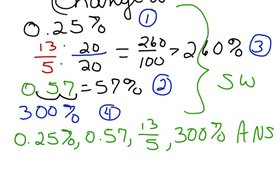 0.25% ①
13/5 · 20/20 = 260/100 > 260% ③
0.57 = 57% ②
SW
300% ④
0.25%, 0.57, 13/5, 300% ANS